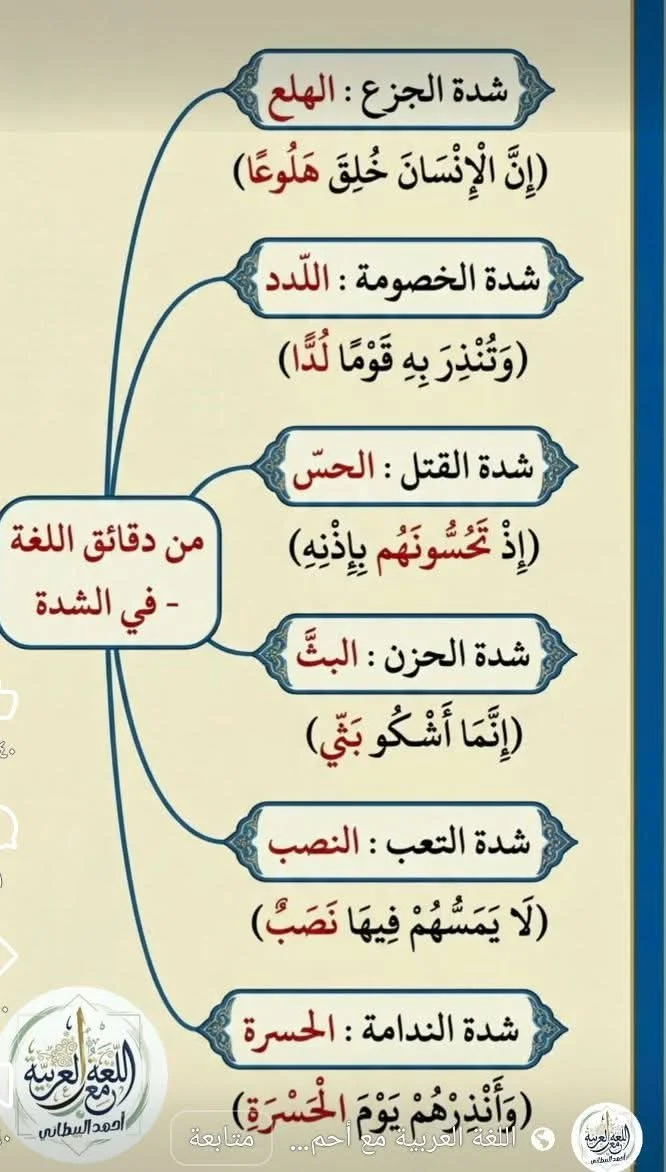 شدة الجزع : الهلع
(إِنَّ الْإِنْسَانَ خُلِقَ هَلُوعًا)
شدة الخصومة : اللّدد
(وَتُنْذِرَ بِهِ قَوْمًا لُدًّا)
شدة القتل : الحسّ
(إِذْ تَحُسُّونَهُم بِإِذْنِهِ)
من دقائق اللغة
- في الشدة
شدة الحزن : البثَّ
(إِنَّمَا أَشْكُو بَثّي)
شدة التعب : النصب
(لَا يَمَسُّهُمْ فِيهَا نَصَبٌ)
شدة الندامة : الحسرة
(وَأَنْذِرْهُمْ يَوْمَ الْحَسْرَةِ)
اللغة العربية
مع
أحمد السطاني
اللغة العربية مع أحم... متابعة